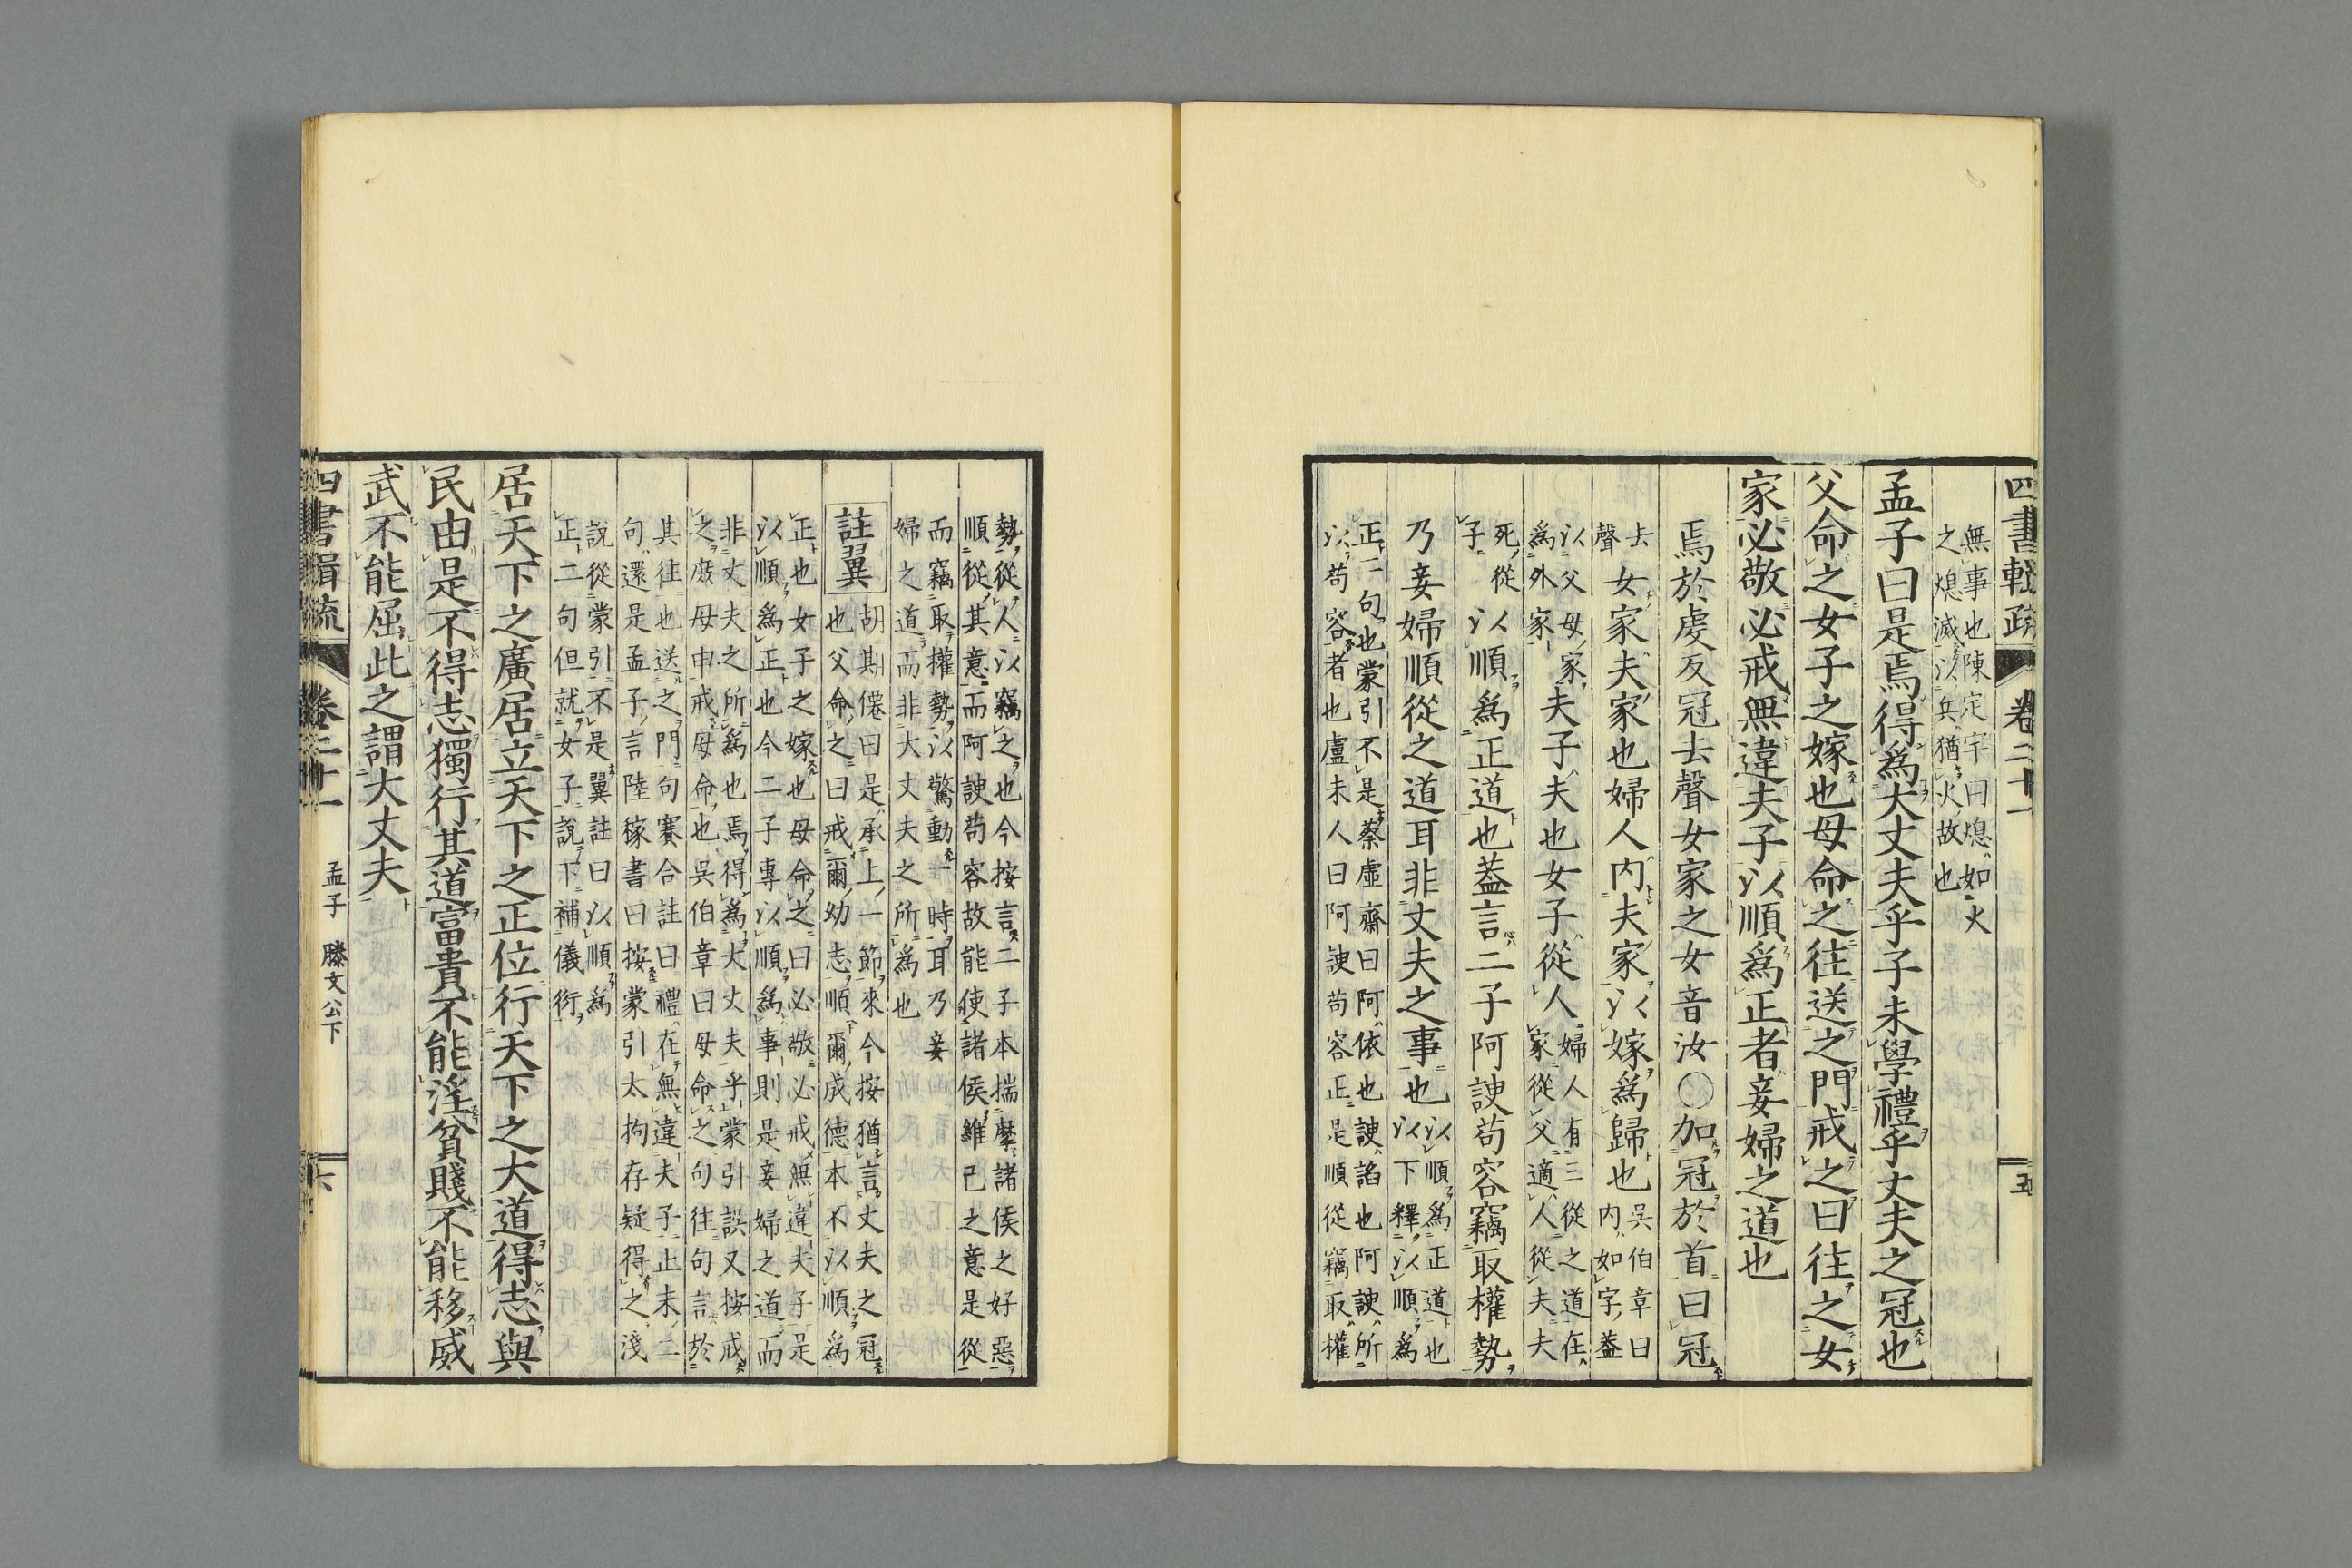 四書輯疏
卷二十一
五
無事也陳定宇曰熄如火
之熄滅以兵猶火故也
孟子曰是焉得爲大丈夫乎子未學禮乎丈夫之冠也
父命之女子之嫁也母命之往送之門戒之曰往之女
家必敬必戒無違夫子以順爲正者妾婦之道也
焉於虔反冠去聲女家之女音汝○加冠於首曰冠
去
聲
女家夫家也婦人内夫家以嫁爲歸也
吳伯章曰
内如字蓋
以父母家
爲外家
夫子夫也女子從人
婦人有三從之道在
家從父適人從夫夫
死從
子
以順爲正道也蓋言二子阿諛苟容竊取權勢
乃妾婦順從之道耳非丈夫之事也
以順爲正道也
以下釋以順爲
正二句也蒙引不是蔡虛齋曰阿依也諛諂也阿諛所
以苟容者也盧未人曰阿諛苟容正是順從竊取權
勢從人以竊之也今按言二子本揣摩諸侯之好惡
順從其意而阿諛苟容故能使諸侯維己之意是從
而竊取權勢以驚動一時耳乃妾
婦之道而非大丈夫之所爲也
註翼
胡期僊曰是承上一節來今按猶言丈夫之冠
也父命之曰戒爾幼志順爾成德本不以順爲
正也女子之嫁也母命之曰必敬必戒無違夫子是
以順爲正也今二子專以順爲事則是妾婦之道而
非丈夫之所爲也焉得爲大丈夫乎蒙引誤又按戒
之廢母申戒母命也吳伯章曰母命之句往句言於
其往也送之門句賽合註曰禮在無違夫子止末二
句還是孟子言陸稼書曰按蒙引太拘存疑得之淺
說從蒙引不是翼註曰以順爲
正二句但就女子說下補儀衍
居天下之廣居立天下之正位行天下之大道得志與
民由是不得志獨行其道富貴不能淫貧賤不能移威
武不能屈此之謂大丈夫
四書輯疏
卷二十一
孟子
滕文公下
六